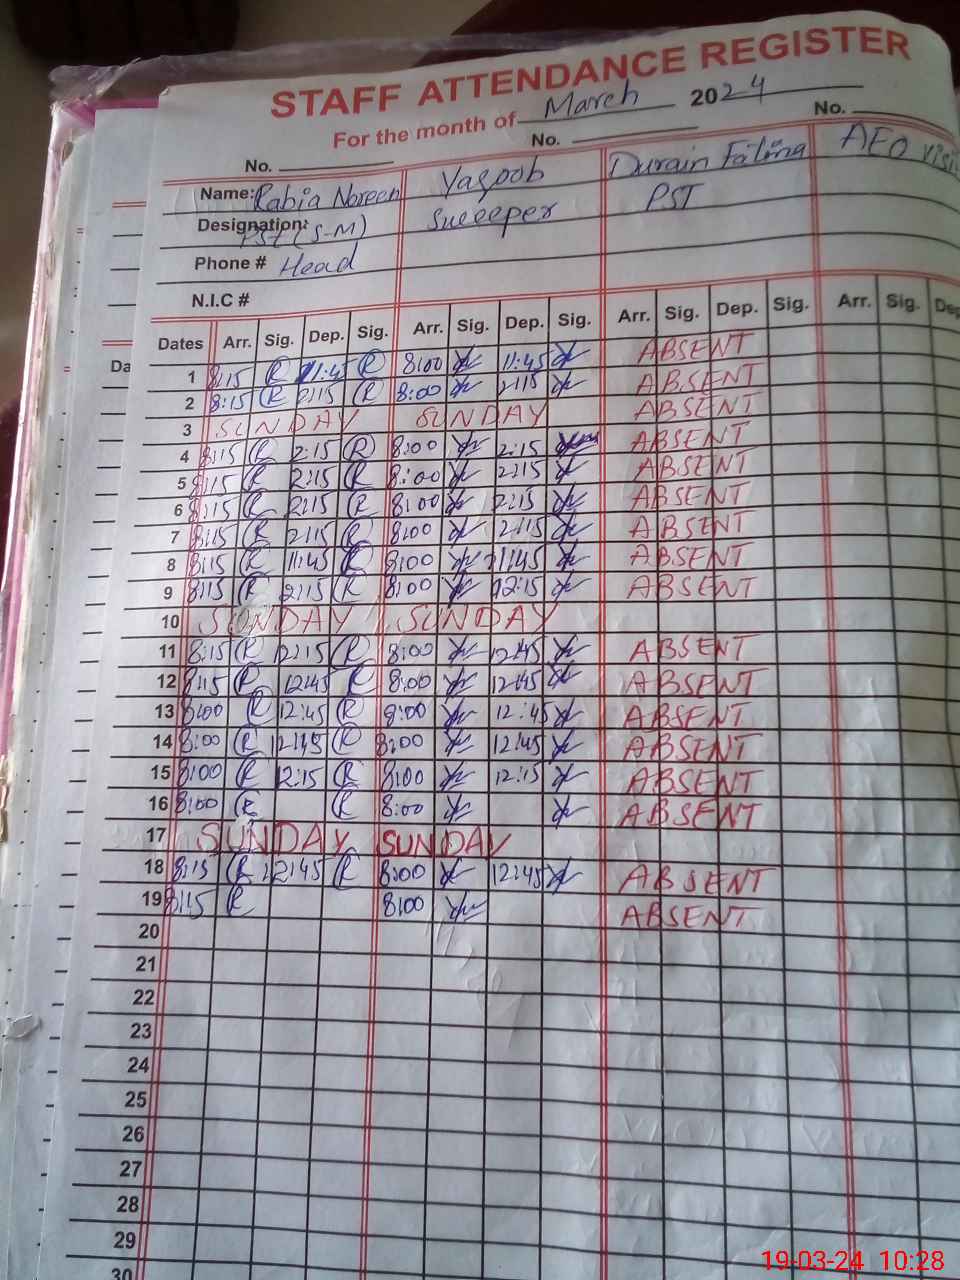 STAFF ATTENDANCE REGISTER
For the month of March 2024
No. No. No.
Name: Rabia Noreen Yaqoob Durain Fatima AEO visi
Designation: PST (S-M) Sweeeper PST
Phone # Head
N.I.C #
Dates Arr. Sig. Dep. Sig. Arr. Sig. Dep. Sig. Arr. Sig. Dep. Sig. Arr. Sig. Dep
Da
1 8:15 R 11:45 R 8:00 11:45 ABSENT
2 8:15 R 2:15 R 8:00 2:15 ABSENT
3 SUNDAY SUNDAY ABSENT
4 8:15 R 2:15 R 8:00 2:15 ABSENT
5 8:15 R 2:15 R 8:00 2:15 ABSENT
6 8:15 R 2:15 R 8:00 2:15 ABSENT
7 8:15 R 2:15 R 8:00 2:15 ABSENT
8 8:15 R 11:45 R 8:00 11:45 ABSENT
9 8:15 R 2:15 R 8:00 12:15 ABSENT
10 SUNDAY SUNDAY
11 8:15 R 12:15 R 8:00 12:45 ABSENT
12 8:15 R 12:45 R 8:00 12:45 ABSENT
13 8:00 R 12:45 R 8:00 12:45 ABSENT
14 8:00 R 12:45 R 8:00 12:45 ABSENT
15 8:00 R 12:15 R 8:00 12:15 ABSENT
16 8:00 R R 8:00 ABSENT
17 SUNDAY SUNDAY
18 8:15 R 12:45 R 8:00 12:45 ABSENT
19 8:15 R 8:00 ABSENT
20
21
22
23
24
25
26
27
28
29
30
19-03-24 10:28